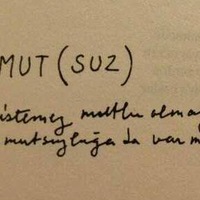 MUT (SUZ)
istemez mutlu olmay
mutsuzluğa da var m